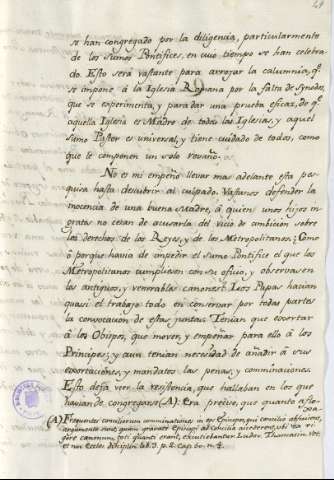 se han congregado por la diligencia, particularmente
de los Sumos Pontifices, en cuio tiempo se han celebra-
do. Esto será vastante para arrojar la calumnia, qe
se impone á la Iglesia Romana por la falta de Synodos,
que se experimenta, y para dar una prueba eficaz, de qe
aquella Iglesia es Madre de todas las Iglesias, y aquel
sumo Pastor es universal, y tiene cuidado de todos, como
que le componen un solo revaño.
No es mi empeño llevar mas adelante esta pes-
quisa hasta descubrir al culpado. Vastanos defender la
inocencia de una buena Madre, á quien unos hijos in-
gratos no cesan de acusarla del vicio de ambición sobre
los derechos de los Reyes, y de los Metropolitanos. ¿Cómo
ó porque havia de impedir el Sumo Pontifice el que los
Metropolitanos cumpliesen con su oficio, y observasen
los antiguos, y venerables canones? Los Papas hacian
quasi el trabajo todo en conservar por todas partes
la convocacion de estas juntas. Tenian que exortar
á los Obispos, que mover, y empeñar para ello á los
Principes; y aun tenian necesidad de añadir á sus
exortaciones, y mandatos las penas, y comminaciones.
Esto dexa ver la resistencia, que hallaban en los que
havian de congregarse (A). Era preciso, que quanto aflo-
xa-
(A) Frequentes conciliorum comminationes in eos Episcopos, qui concilio abfuissent,
argumento sunt, quam gravate Episcopi ad concilia accederent, ubi ea ri-
gore canonum, tot quot erant, excutiebantur. Ludov. Thomasin. vet.
et nov. Eccles. disciplin. lib. 3. p. 2. cap. 60. n. 4.